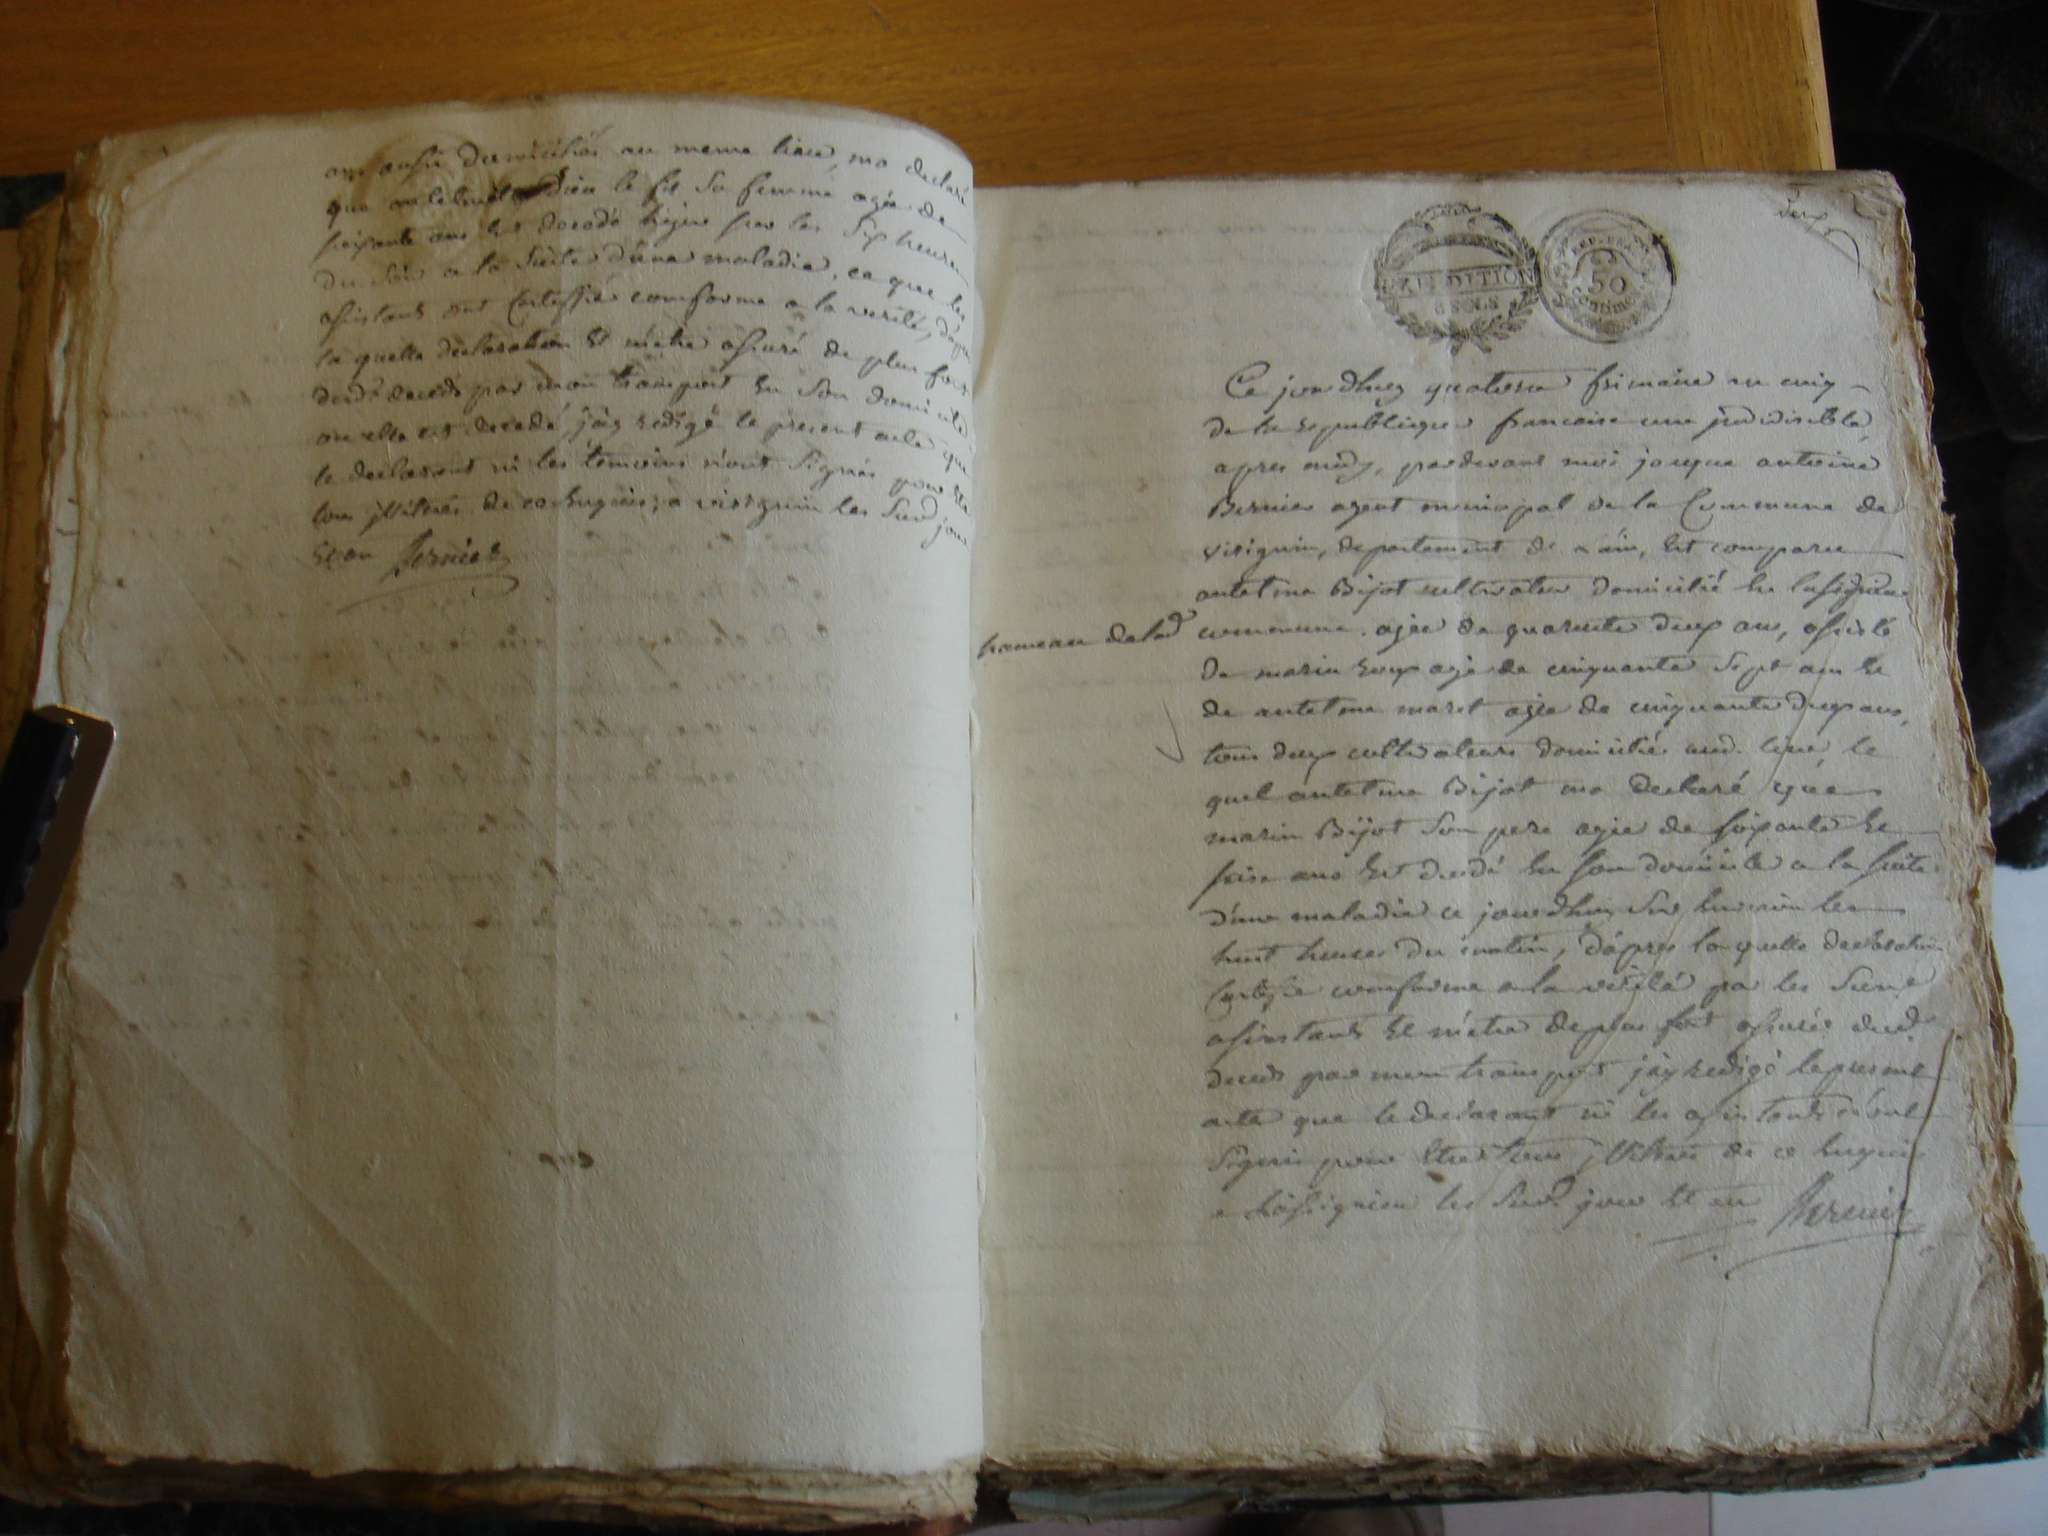 ans aussi domicilié au meme lieu, ma declaré
que antelmette Dieu le fit sa femme agée de
soixante ans est decedé hyer sur les six heures
du soir a la suite d'une maladie, ce que les
assistants ont certiffié conforme a la verité, d'apres
la quelle declaration et m'etre assuré de plus fort
dud. deceds par mon transport en son domicile
ou elle est decedé j'ay redigé le present acte que
le declarant ni les temoins n'ont signés pour etre
tous illitérés de ce enquis, a virignin les sud. jour
et an Bernier
deux
EXPEDITION
6 SOLS
REP. FRA.
50
centimes
Ce jourdhuy quatorze frimaire an cinq
de la republique francaise une indivisible,
apres midy, pardevant moi jacque antoine
Bernier agent municipal de la Commune de
virignin, departement de l'ain, est comparu
antelme Bijot cultivateur domicilié en lassignieu
hameau de lad. commune, agée de quarante deux ans, assisté
de marin roux agé de cinquante sept ans et
de antelme maret agée de cinquante deux ans,
tous deux cultivateurs domicilié aud. lieu, le
quel antelme Bijot ma declaré que
marin Bijot son pere agée de soixante et
seize ans est decedé en son domicile a la suite
d'une maladie ce jourdhuy sur environ les
huit heures du matin, d'apres la quelle declaration
certifié conforme a la verité par les susd.
assistants et m'etre de plus fort assurée dud.
deceds par mon transport j'ay redigé le present
acte que le declarant ni les assistants n'ont
signés pour etre tous illitérés de ce enquis
a lassignieu les susd. jour et an Bernier